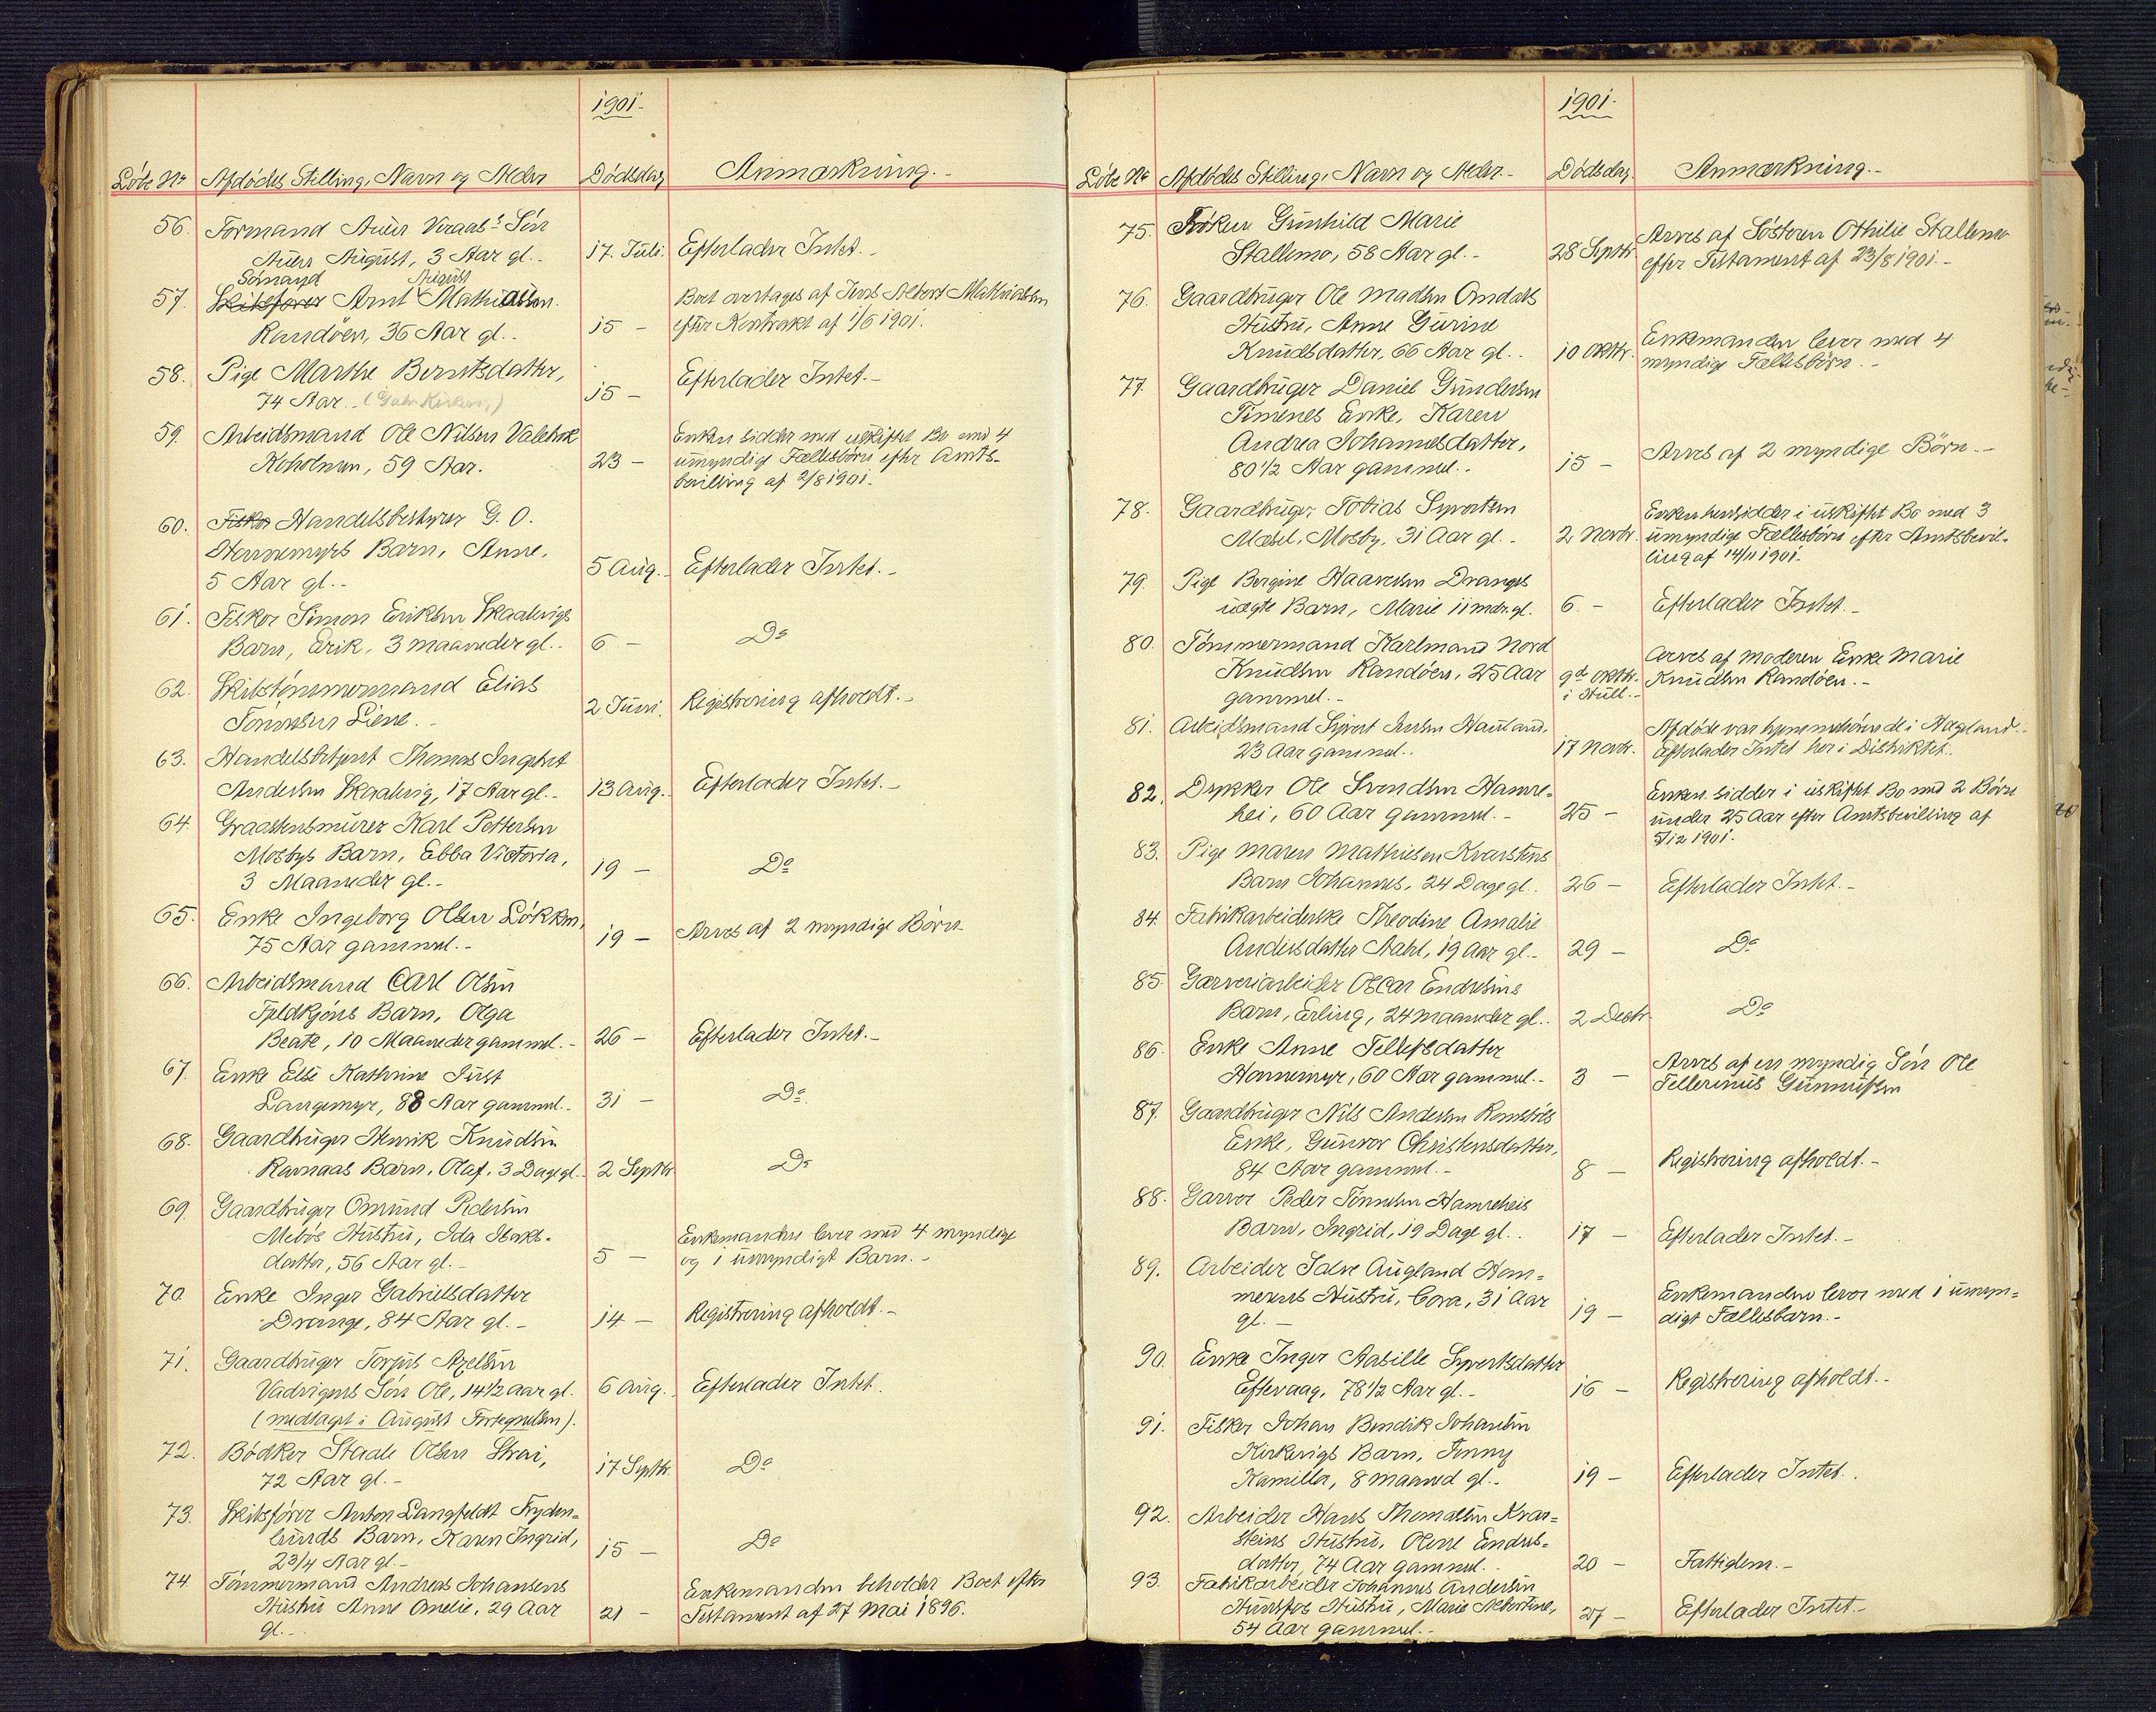 1901.
Løbe No Afdødes Stilling, Navn og Alder Dødsdag Anmærkning.-
56. Formand Auen Viraas's Søn
Auen August, 3 Aar gl.- 17. Juli. Efterlader Intet.-
Sømand August
57. Skibsfører Arnt Mathiassen
Randøen, 36 Aar gl.. 15 - Boet overtages af Jens Albert Mathiassen
efter Kontrakt af 1/6 1901.
58. Pige Marthe Berntsdatter,
74 Aar.. 15 - Efterlader Intet.-
59. Arbeidsmand Ole Nilsen Valebrok
Koholmen, 59 Aar. 23 - Enken sidder med uskiftet Bo med 4
umyndige Fællesbørn efter Amts-
bevilling af 2/8 1901.
60. Fisker Handelsbestyrer G. O.
Hannemyrs Barn, Anne,
5 Aar gl.. 5 Aug. Efterlader Intet.-
61. Fisker Simon Eriksen Skaalevigs
Barn, Erik, 3 maaneder gl.. 6 - Do
62. Skibstømmermand Elias
Tønnesen Liene.- 2 Juni. Registrering afholdt.-
63. Handelsbetjent Thomas Ingebret
Andersen Skaalevig, 17 Aar gl.- 13 Aug. Efterlader Intet.-
64. Graastensmurer Karl Pettersen
Mosbys Barn, Ebba Victoria,
3 Maaneder gl.- 19 - Do
65. Enke Ingeborg Olsen Løkken,
75 Aar gammel.- 19 - Arves af 2 myndige Børn
66. Arbeidsmand Carl Olsen
Fjeldkjøns Barn, Olga
Beate, 10 Maaneder gammel.- 26 - Efterlader Intet.-
67. Enke Else Kathrine Just
Langemyr, 88 Aar gammel.- 31 - Do
68. Gaardbruger Henrik Knudsen
Ravnaas Barn, Olaf, 3 Dage gl.- 2 Septbr Do
69. Gaardbruger Omund Pedersen
Mebøs Hustru, Ida Isaks-
datter, 56 Aar gl.- 5 - Enkemanden lever med 4 myndige
og 1 umyndigt Barn.-
70. Enke Inger Gabrielsdatter
Drange, 84 Aar gl.- 14 - Registrering afholdt.-
71. Gaardbruger Torjus Axelsen
Vadvigens Søn Ole, 14 1/2 aar gl. 6 Aug. Efterlader Intet.
(medtaget i August Fortegnelsen).
72. Bødker Staale Olsen Strai,
72 Aar gl.- 17 Septbr. Do
73. Skibsfører Anton Langfeldt Fryden-
lunds Barn, Karen Ingrid,
2 3/4 Aar gl.- 15 - Do
74. Tømmermand Andreas Johansens
Hustru Anne Amelie, 29 Aar
gl.- 21 - Enkemanden beholder Boet efter
Testament af 27 Mai 1896.
1901.
Løbe No Afdødes Stilling, Navn og Alder.- Dødsdag. Anmærkning.-
75. Frøken Gunhild Marie
Stallemo, 58 Aar gl.- 28 Septbr. Arves af Søsteren Othilie Stallemo
efter Testament af 23/8 1901.-
76. Gaardbruger Ole Madsen Omdals
Hustru, Anne Gurine
Knudsdatter, 66 Aar gl.. 10 Oktbr. Enkemanden lever med 4
myndige Fællesbørn.-
77. Gaardbruger Daniel Gundersen
Timenes Enke, Karen
Andrea Johannesdatter,
80 1/2 Aar gammel.. 15 - Arves af 2 myndige Børn.-
78. Gaardbruger Tobias Syvertsen
Mæsel, Mosby, 31 Aar gl.- 2 Novbr. Enken hensidder i uskiftet Bo med 3
umyndige Fællesbørn efter Amtsbevil-
ling af 14/11 1901.
79. Pige Bergine Haavesen Dranges
uægte Barn, Marie 11 mdr. gl. 6. - Efterlader Intet.-
80. Tømmermand Karlmand Nord
Knudsen Randøen, 25 Aar
gammel.- 9de Oktbr. i Hull.- Arves af Moderen Enke Marie
Knudsen Randøen.-
81. Arbeidsmand Syvert Jensen Hauland,
23 Aar gammel.. 17 Novbr. Afdøde var hjemmehørende i Hægland..
Efterlader Intet her i Distriktet.
82. Drykker Ole Svendsen Hamre-
hei, 60 Aar gammel.- 25 - Enken sidder i uskiftet Bo med 2 Børn
under 25 Aar efter Amtsbevilling af
5/12 1901.
83. Pige Maren Mathiesen Kvarstens
Barn Johannes, 24 Dage gl.. 26 - Efterlader Intet.-
84. Fabrikarbeiderske Theodine Amalie
Andersdatter Aahl, 19 Aar gl.- 29 - Do
85. Garveriarbeider Oscar Endresens
Barn, Erling, 24 maaneder gl.. 2 Decbr Do
86. Enke Anne Tellefsdatter
Hannemyr, 60 Aar gammel.- 3 - Arves af en myndig Søn Ole
Tellerius Gunnufsen
87. Gaardbruger Nils Andersen Romstøls
Enke, Gunvor Christensdatter,
84 Aar gammel.- 8 - Registrering afholdt.-
88. Garver Peder Tønnesen Hamreheis
Barn, Ingrid, 19 Dage gl.. 17 - Efterlader Intet.-
89. Arbeider Salve Augland Ham-
merens Hustru, Cora, 31 Aar
gl.- 19 - Enkemanden lever med 1 umyn-
digt Fællesbarn.-
90. Enke Inger Aasille Syvertsdatter
Eftevaag, 78 1/2 Aar gl.- 16 - Registrering afholdt.-
91. Fisker Johan Bendik Johansen
Kirkevigs Barn, Jenny
Kamilla, 8 maaned gl.- 19 - Efterlader Intet..
92. Arbeider Hans Thomassen Kvar-
steins Hustru, Olene Endres-
datter, 74 Aar gammel.. 20 - Fattiglem.-
93. Fabrikarbeider Johannes Andersen
Hunsfos Hustru, Marie Albertine,
54 Aar gammel.- 27 - Efterlader Intet.-